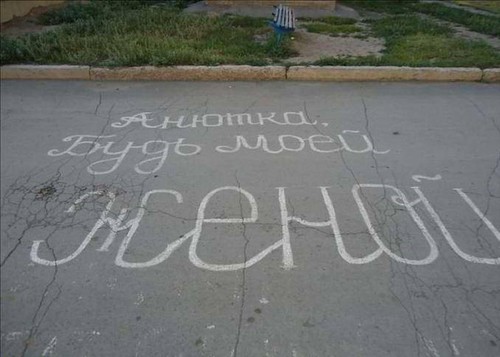 Анютка,
Будь моей
женой